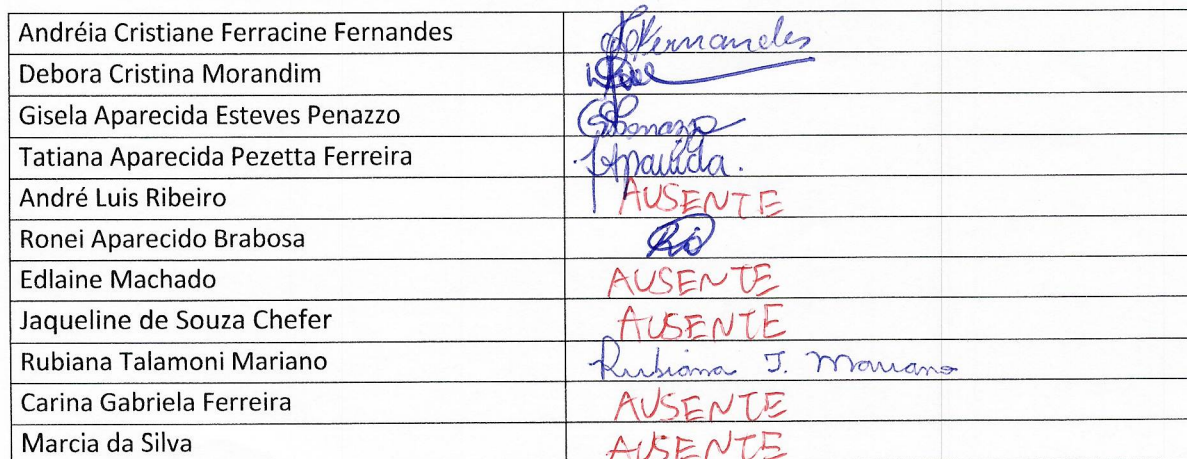 Andréia Cristiane Ferracine Fernandes Fernandes
Debora Cristina Morandim
Gisela Aparecida Esteves Penazzo GPenazzo
Tatiana Aparecida Pezetta Ferreira Aparecida.
André Luis Ribeiro AUSENTE
Ronei Aparecido Brabosa
Edlaine Machado AUSENTE
Jaqueline de Souza Chefer AUSENTE
Rubiana Talamoni Mariano Rubiana T. Mariano
Carina Gabriela Ferreira AUSENTE
Marcia da Silva AUSENTE